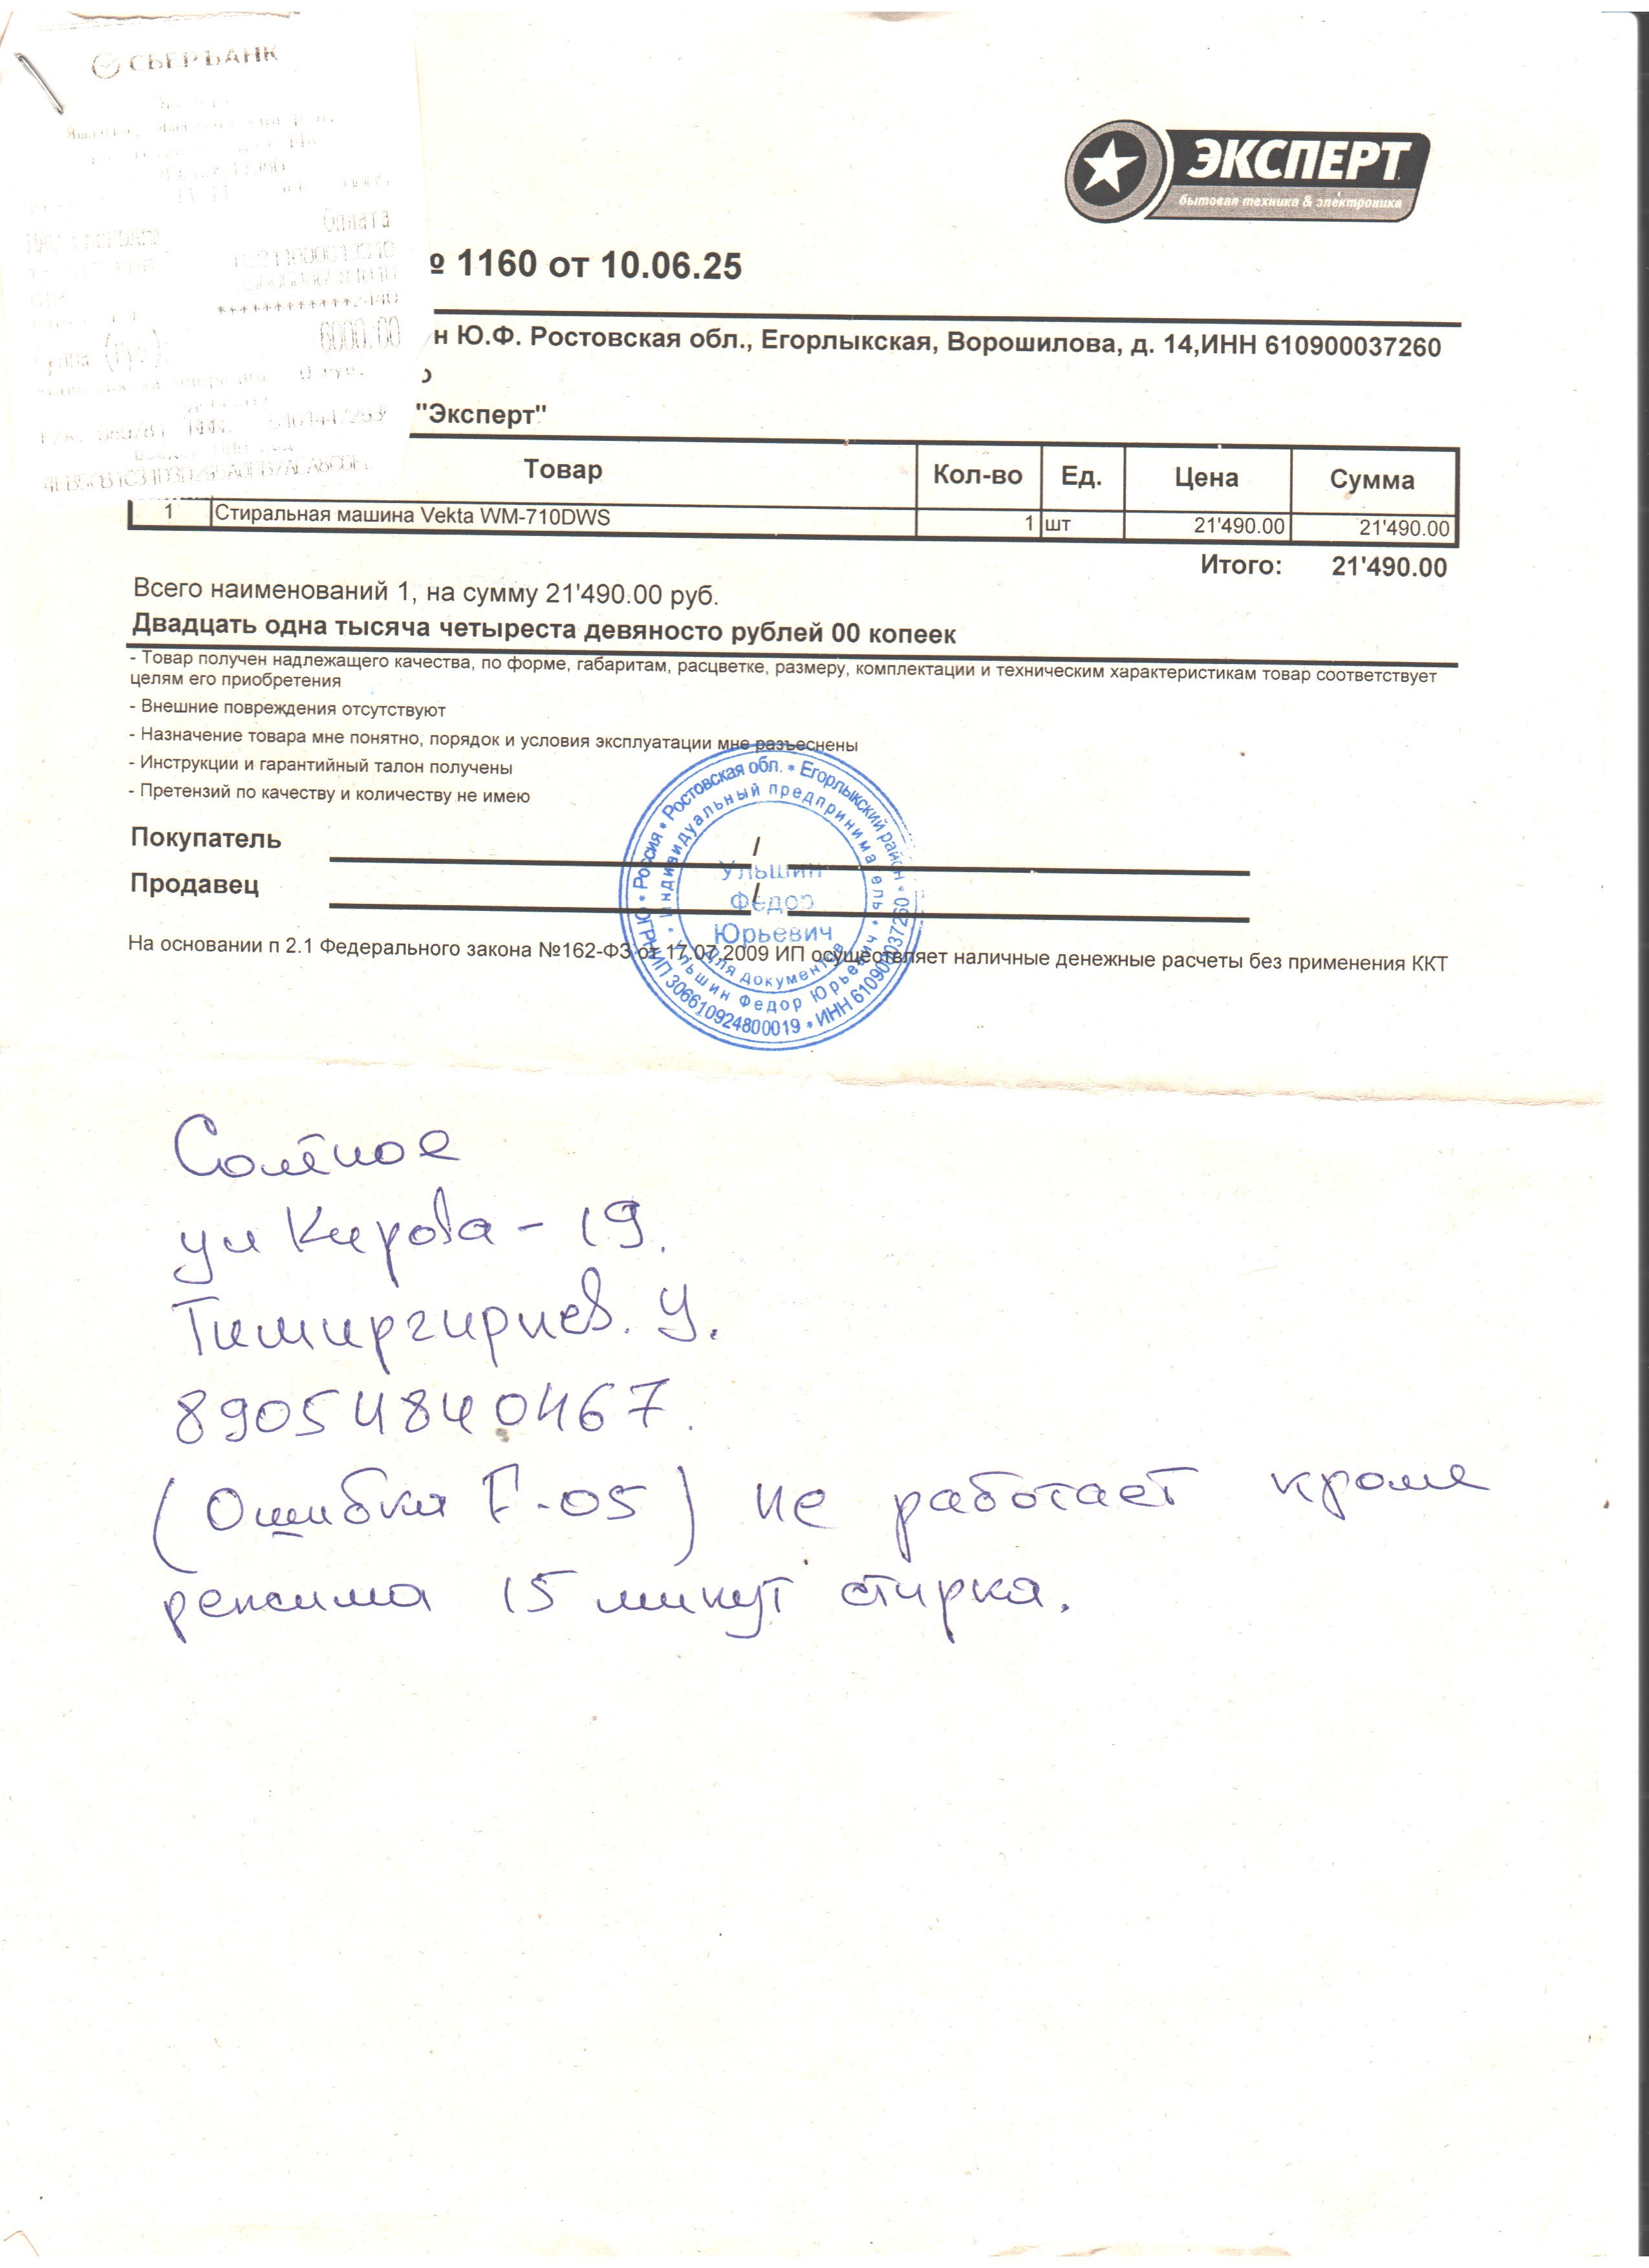 СБЕРБАНК
Оплата
6000.00
ЭКСПЕРТ
бытовая техника & электроника
№ 1160 от 10.06.25
н Ю.Ф. Ростовская обл., Егорлыкская, Ворошилова, д. 14,ИНН 610900037260
"Эксперт"
Товар Кол-во Ед. Цена Сумма
1 Стиральная машина Vekta WM-710DWS 1 шт 21'490.00 21'490.00
Итого: 21'490.00
Всего наименований 1, на сумму 21'490.00 руб.
Двадцать одна тысяча четыреста девяносто рублей 00 копеек
- Товар получен надлежащего качества, по форме, габаритам, расцветке, размеру, комплектации и техническим характеристикам товар соответствует
целям его приобретения
- Внешние повреждения отсутствуют
- Назначение товара мне понятно, порядок и условия эксплуатации мне разъеснены
- Инструкции и гарантийный талон получены
- Претензий по качеству и количеству не имею
Покупатель /
Продавец /
На основании п 2.1 Федерального закона №162-ФЗ от 17.07.2009 ИП осуществляет наличные денежные расчеты без применения ККТ
Россия * Ростовская обл. * Егорлыкский район * ИНН 610900037260 * ОГРНИП 306610924800019
Индивидуальный предприниматель * Ульшин Федор Юрьевич
Ульшин
Федор
Юрьевич
Для документов
Солёное
ул Кирова - 19.
Тимиргириев. У.
89054840467.
(Ошибка F-05) не работает кроме
режима 15 минут стирка.